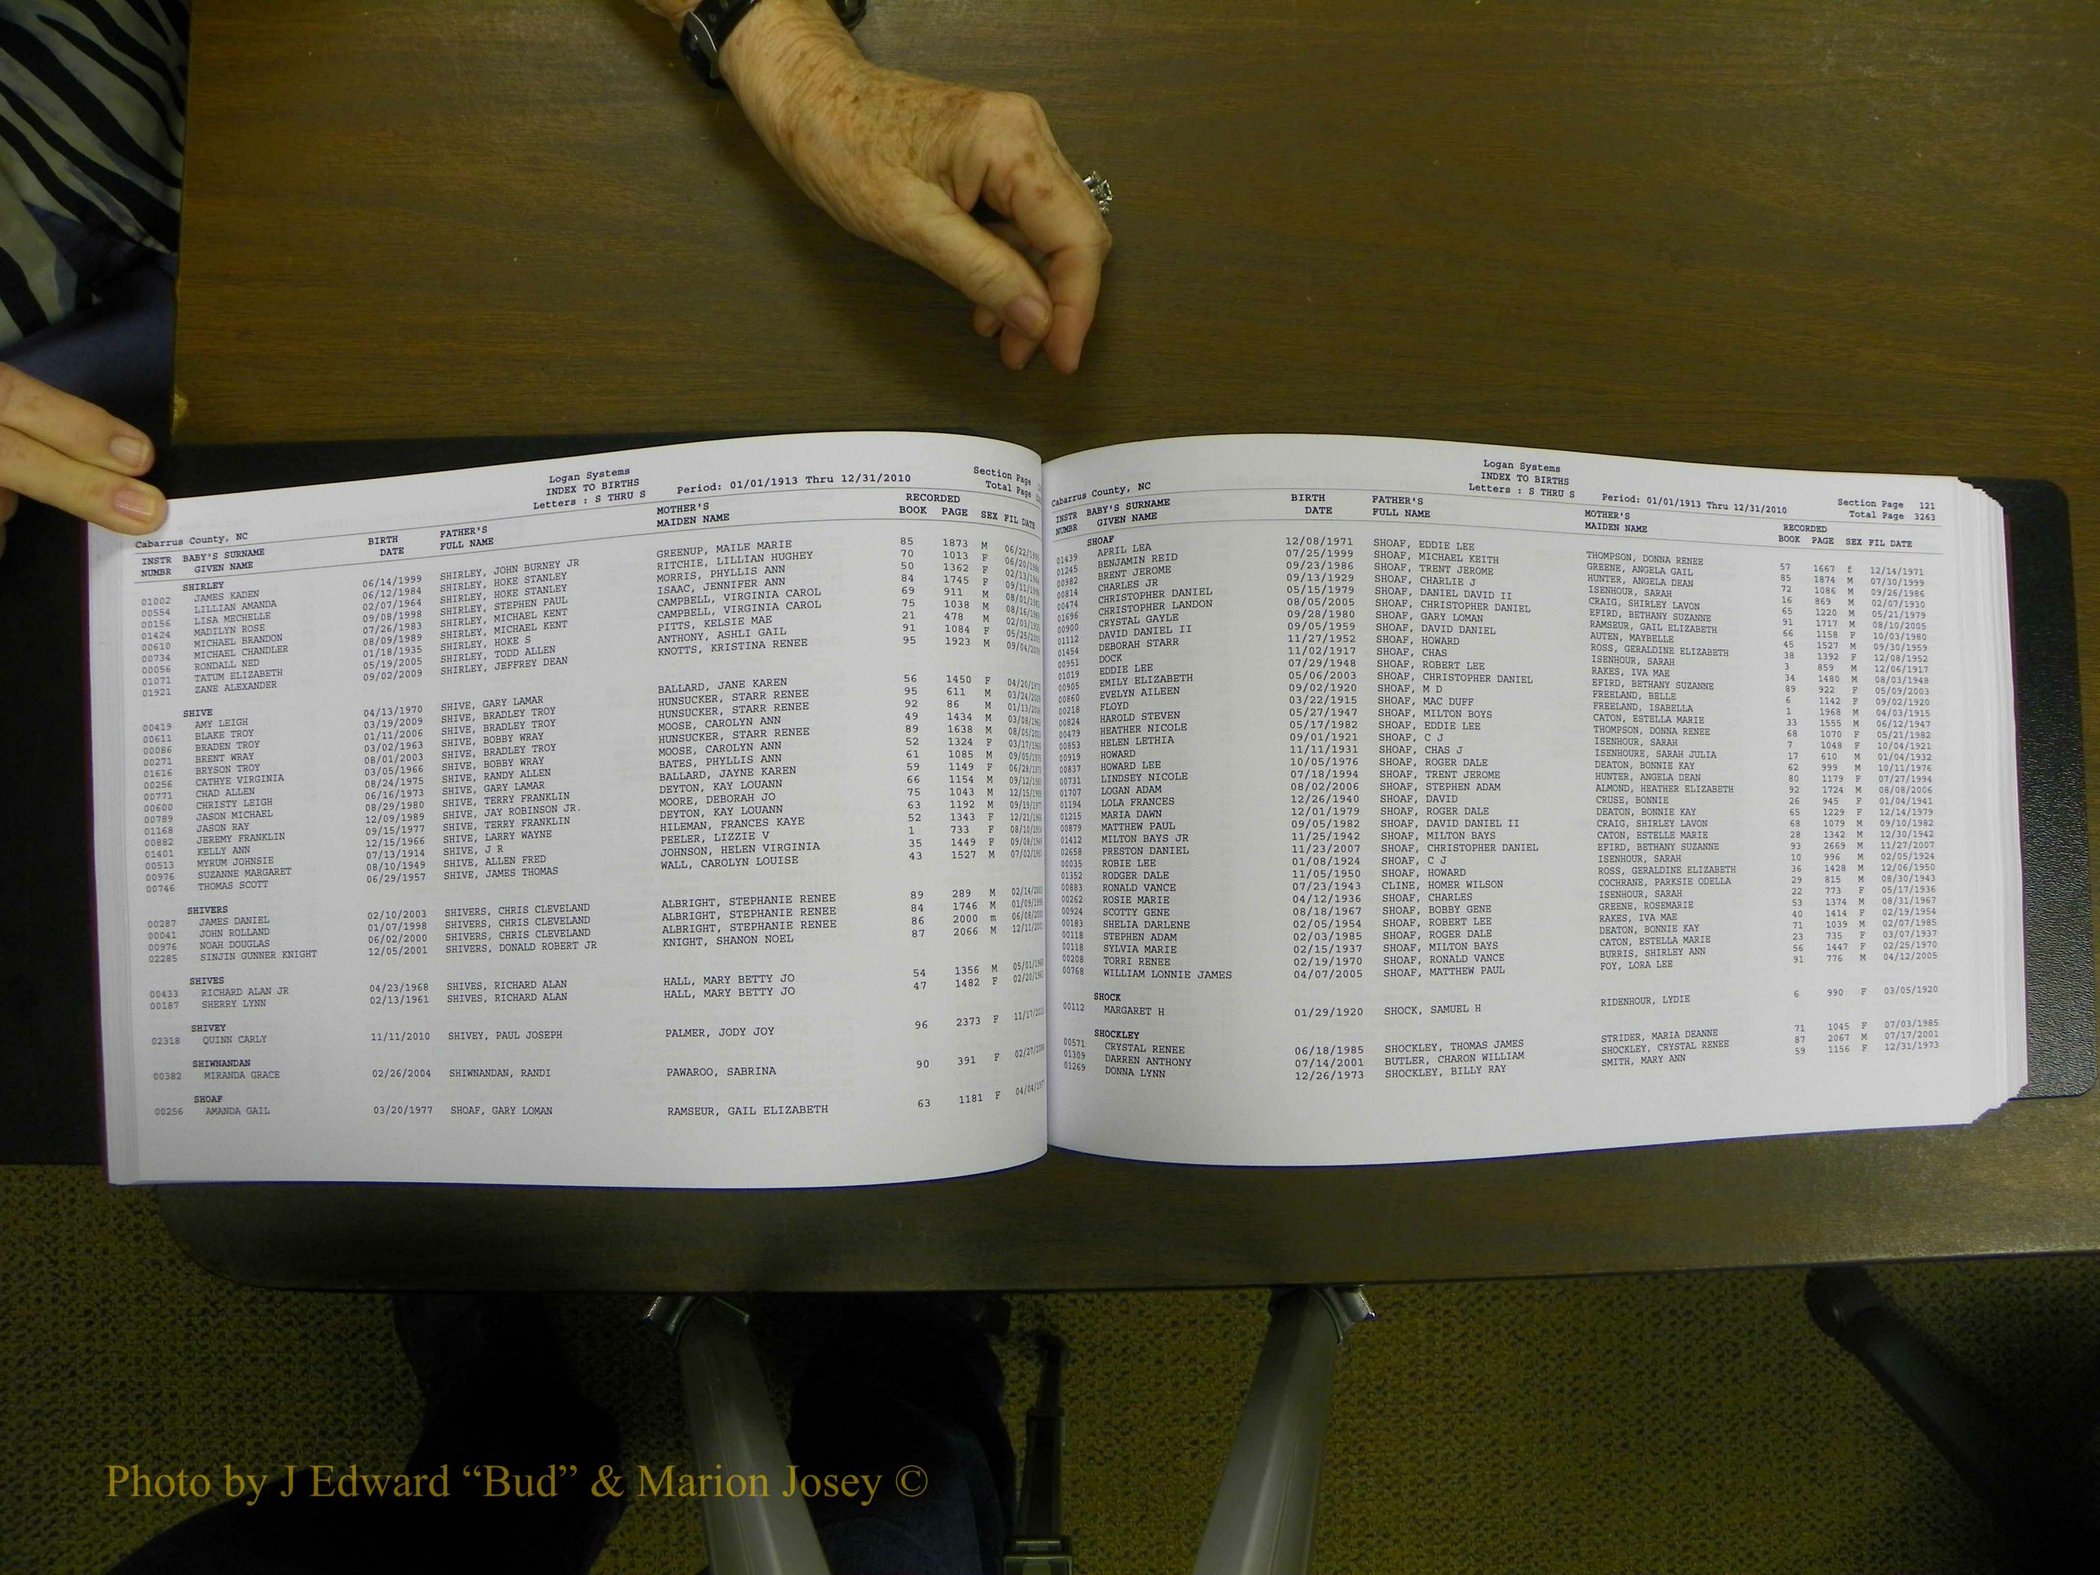 Logan Systems
INDEX TO BIRTHS
Letters : S THRU S Period: 01/01/1913 Thru 12/31/2010
Section Page
Total Page
Cabarrus County, NC
INSTR NUMBR BABY'S SURNAME GIVEN NAME BIRTH DATE FATHER'S FULL NAME MOTHER'S MAIDEN NAME RECORDED BOOK PAGE SEX FIL DATE
SHIRLEY
01002 JAMES KADEN 06/14/1999 SHIRLEY, JOHN BURNEY JR GREENUP, MAILE MARIE 85 1873 M
00554 LILLIAN AMANDA 06/12/1984 SHIRLEY, HOKE STANLEY RITCHIE, LILLIAN HUGHEY 70 1013 F
00156 LISA MECHELLE 02/07/1964 SHIRLEY, HOKE STANLEY MORRIS, PHYLLIS ANN 50 1362 F
01424 MADILYN ROSE 09/08/1998 SHIRLEY, STEPHEN PAUL ISAAC, JENNIFER ANN 84 1745 F
00610 MICHAEL BRANDON 07/26/1983 SHIRLEY, MICHAEL KENT CAMPBELL, VIRGINIA CAROL 69 911 M
00734 MICHAEL CHANDLER 08/09/1989 SHIRLEY, MICHAEL KENT CAMPBELL, VIRGINIA CAROL 75 1038 M
00056 RONDALL NED 01/18/1935 SHIRLEY, HOKE S PITTS, KELSIE MAE 21 478 M
01071 TATUM ELIZABETH 05/19/2005 SHIRLEY, TODD ALLEN ANTHONY, ASHLI GAIL 91 1084 F
01921 ZANE ALEXANDER 09/02/2009 SHIRLEY, JEFFREY DEAN KNOTTS, KRISTINA RENEE 95 1923 M
SHIVE
00419 AMY LEIGH 04/13/1970 SHIVE, GARY LAMAR BALLARD, JANE KAREN 56 1450 F
00611 BLAKE TROY 03/19/2009 SHIVE, BRADLEY TROY HUNSUCKER, STARR RENEE 95 611 M
00086 BRADEN TROY 01/11/2006 SHIVE, BRADLEY TROY HUNSUCKER, STARR RENEE 92 86 M
00271 BRENT WRAY 03/02/1963 SHIVE, BOBBY WRAY MOOSE, CAROLYN ANN 49 1434 M
01616 BRYSON TROY 08/01/2003 SHIVE, BRADLEY TROY HUNSUCKER, STARR RENEE 89 1638 M
00256 CATHYE VIRGINIA 03/05/1966 SHIVE, BOBBY WRAY MOOSE, CAROLYN ANN 52 1324 F
00771 CHAD ALLEN 08/24/1975 SHIVE, RANDY ALLEN BATES, PHYLLIS ANN 61 1085 M
00600 CHRISTY LEIGH 06/16/1973 SHIVE, GARY LAMAR BALLARD, JAYNE KAREN 59 1149 F
00789 JASON MICHAEL 08/29/1980 SHIVE, TERRY FRANKLIN DEYTON, KAY LOUANN 66 1154 M
01168 JASON RAY 12/09/1989 SHIVE, JAY ROBINSON JR. MOORE, DEBORAH JO 75 1043 M
00882 JEREMY FRANKLIN 09/15/1977 SHIVE, TERRY FRANKLIN DEYTON, KAY LOUANN 63 1192 M
01401 KELLY ANN 12/15/1966 SHIVE, LARRY WAYNE HILEMAN, FRANCES KAYE 52 1343 F
00513 MYRUM JOHNSIE 07/13/1914 SHIVE, J R PEELER, LIZZIE V 1 733 F
00976 SUZANNE MARGARET 08/10/1949 SHIVE, ALLEN FRED JOHNSON, HELEN VIRGINIA 35 1449 F
00746 THOMAS SCOTT 06/29/1957 SHIVE, JAMES THOMAS WALL, CAROLYN LOUISE 43 1527 M
SHIVERS
00287 JAMES DANIEL 02/10/2003 SHIVERS, CHRIS CLEVELAND ALBRIGHT, STEPHANIE RENEE 89 289 M
00041 JOHN ROLLAND 01/07/1998 SHIVERS, CHRIS CLEVELAND ALBRIGHT, STEPHANIE RENEE 84 1746 M
00976 NOAH DOUGLAS 06/02/2000 SHIVERS, CHRIS CLEVELAND ALBRIGHT, STEPHANIE RENEE 86 2000 m
02285 SINJIN GUNNER KNIGHT 12/05/2001 SHIVERS, DONALD ROBERT JR KNIGHT, SHANON NOEL 87 2066 M
SHIVES
00433 RICHARD ALAN JR 04/23/1968 SHIVES, RICHARD ALAN HALL, MARY BETTY JO 54 1356 M
00187 SHERRY LYNN 02/13/1961 SHIVES, RICHARD ALAN HALL, MARY BETTY JO 47 1482 F
SHIVEY
02318 QUINN CARLY 11/11/2010 SHIVEY, PAUL JOSEPH PALMER, JODY JOY 96 2373 F
SHIWNANDAN
00382 MIRANDA GRACE 02/26/2004 SHIWNANDAN, RANDI PAWAROO, SABRINA 90 391 F
SHOAF
00256 AMANDA GAIL 03/20/1977 SHOAF, GARY LOMAN RAMSEUR, GAIL ELIZABETH 63 1181 F
Logan Systems
INDEX TO BIRTHS
Letters : S THRU S Period: 01/01/1913 Thru 12/31/2010
Section Page 121
Total Page 3263
Cabarrus County, NC
INSTR NUMBR BABY'S SURNAME GIVEN NAME BIRTH DATE FATHER'S FULL NAME MOTHER'S MAIDEN NAME RECORDED BOOK PAGE SEX FIL DATE
SHOAF
01439 APRIL LEA 12/08/1971 SHOAF, EDDIE LEE THOMPSON, DONNA RENEE 57 1667 f 12/14/1971
01245 BENJAMIN REID 07/25/1999 SHOAF, MICHAEL KEITH GREENE, ANGELA GAIL 85 1874 M 07/30/1999
00982 BRENT JEROME 09/23/1986 SHOAF, TRENT JEROME HUNTER, ANGELA DEAN 72 1086 M 09/26/1986
00814 CHARLES JR 09/13/1929 SHOAF, CHARLIE J ISENHOUR, SARAH 16 869 M 02/07/1930
00474 CHRISTOPHER DANIEL 05/15/1979 SHOAF, DANIEL DAVID II CRAIG, SHIRLEY LAVON 65 1220 M 05/21/1979
01696 CHRISTOPHER LANDON 08/05/2005 SHOAF, CHRISTOPHER DANIEL EFIRD, BETHANY SUZANNE 91 1717 M 08/10/2005
00900 CRYSTAL GAYLE 09/28/1980 SHOAF, GARY LOMAN RAMSEUR, GAIL ELIZABETH 66 1158 F 10/03/1980
01112 DAVID DANIEL II 09/05/1959 SHOAF, DAVID DANIEL AUTEN, MAYBELLE 45 1527 M 09/30/1959
01454 DEBORAH STARR 11/27/1952 SHOAF, HOWARD ROSS, GERALDINE ELIZABETH 38 1392 F 12/08/1952
00951 DOCK 11/02/1917 SHOAF, CHAS ISENHOUR, SARAH 3 859 M 12/06/1917
01019 EDDIE LEE 07/29/1948 SHOAF, ROBERT LEE RAKES, IVA MAE 34 1480 M 08/03/1948
00905 EMILY ELIZABETH 05/06/2003 SHOAF, CHRISTOPHER DANIEL EFIRD, BETHANY SUZANNE 89 922 F 05/09/2003
00860 EVELYN AILEEN 09/02/1920 SHOAF, M D FREELAND, BELLE 6 1142 F 09/02/1920
00218 FLOYD 03/22/1915 SHOAF, MAC DUFF FREELAND, ISABELLA 1 1968 M 04/03/1915
00824 HAROLD STEVEN 05/27/1947 SHOAF, MILTON BOYS CATON, ESTELLA MARIE 33 1555 M 06/12/1947
00479 HEATHER NICOLE 05/17/1982 SHOAF, EDDIE LEE THOMPSON, DONNA RENEE 68 1070 F 05/21/1982
00853 HELEN LETHIA 09/01/1921 SHOAF, C J ISENHOUR, SARAH 7 1048 F 10/04/1921
00919 HOWARD 11/11/1931 SHOAF, CHAS J ISENHOURE, SARAH JULIA 17 610 M 01/04/1932
00837 HOWARD LEE 10/05/1976 SHOAF, ROGER DALE DEATON, BONNIE KAY 62 999 M 10/11/1976
00731 LINDSEY NICOLE 07/18/1994 SHOAF, TRENT JEROME HUNTER, ANGELA DEAN 80 1179 F 07/27/1994
01707 LOGAN ADAM 08/02/2006 SHOAF, STEPHEN ADAM ALMOND, HEATHER ELIZABETH 92 1724 M 08/08/2006
01194 LOLA FRANCES 12/26/1940 SHOAF, DAVID CRUSE, BONNIE 26 945 F 01/04/1941
01215 MARIA DAWN 12/01/1979 SHOAF, ROGER DALE DEATON, BONNIE KAY 65 1229 F 12/14/1979
00879 MATTHEW PAUL 09/05/1982 SHOAF, DAVID DANIEL II CRAIG, SHIRLEY LAVON 68 1079 M 09/10/1982
01412 MILTON BAYS JR 11/25/1942 SHOAF, MILTON BAYS CATON, ESTELLE MARIE 28 1342 M 12/30/1942
02658 PRESTON DANIEL 11/23/2007 SHOAF, CHRISTOPHER DANIEL EFIRD, BETHANY SUZANNE 93 2669 M 11/27/2007
00035 ROBIE LEE 01/08/1924 SHOAF, C J ISENHOUR, SARAH 10 996 M 02/05/1924
01352 RODGER DALE 11/05/1950 SHOAF, HOWARD ROSS, GERALDINE ELIZABETH 36 1428 M 12/06/1950
00883 RONALD VANCE 07/23/1943 CLINE, HOMER WILSON COCHRANE, PARKSIE ODELLA 29 815 M 08/30/1943
00262 ROSIE MARIE 04/12/1936 SHOAF, CHARLES ISENHOUR, SARAH 22 773 F 05/17/1936
00924 SCOTTY GENE 08/18/1967 SHOAF, BOBBY GENE GREENE, ROSEMARIE 53 1374 M 08/31/1967
00183 SHELIA DARLENE 02/05/1954 SHOAF, ROBERT LEE RAKES, IVA MAE 40 1414 F 02/19/1954
00118 STEPHEN ADAM 02/03/1985 SHOAF, ROGER DALE DEATON, BONNIE KAY 71 1039 M 02/07/1985
00118 SYLVIA MARIE 02/15/1937 SHOAF, MILTON BAYS CATON, ESTELLA MARIE 23 735 F 03/07/1937
00208 TORRI RENEE 02/19/1970 SHOAF, RONALD VANCE BURRIS, SHIRLEY ANN 56 1447 F 02/25/1970
00768 WILLIAM LONNIE JAMES 04/07/2005 SHOAF, MATTHEW PAUL FOY, LORA LEE 91 776 M 04/12/2005
SHOCK
00112 MARGARET H 01/29/1920 SHOCK, SAMUEL H RIDENHOUR, LYDIE 6 990 F 03/05/1920
SHOCKLEY
00571 CRYSTAL RENEE 06/18/1985 SHOCKLEY, THOMAS JAMES STRIDER, MARIA DEANNE 71 1045 F 07/03/1985
01309 DARREN ANTHONY 07/14/2001 BUTLER, CHARON WILLIAM SHOCKLEY, CRYSTAL RENEE 87 2067 M 07/17/2001
01269 DONNA LYNN 12/26/1973 SHOCKLEY, BILLY RAY SMITH, MARY ANN 59 1156 F 12/31/1973
Photo by J Edward “Bud” & Marion Josey ©